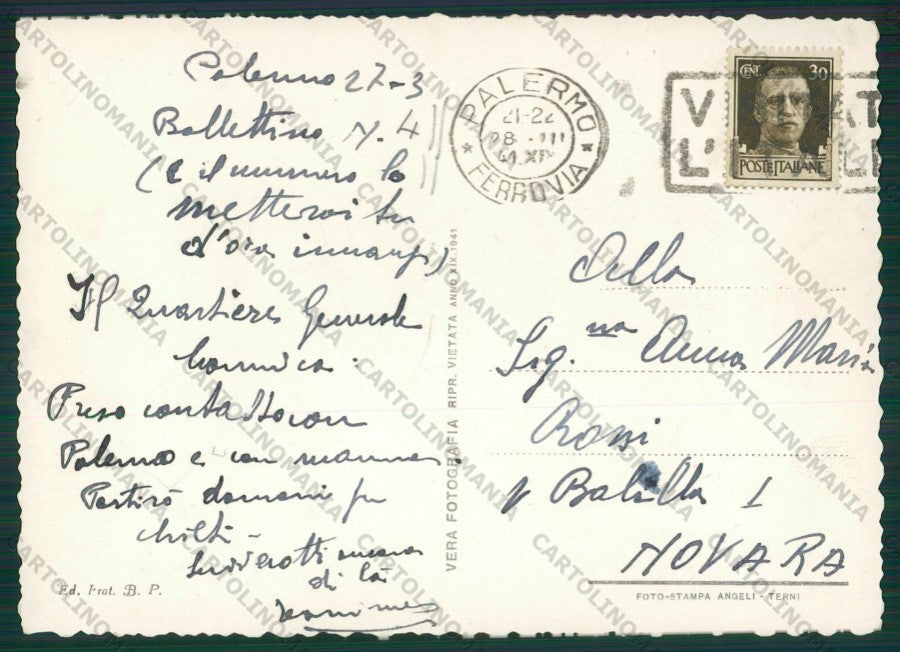 Palermo 27-3
Bollettino N. 4
(e il numero lo
metterai tu
d'ora innanzi)
Il Quartiere Generale
Comunica:
Preso contatto con
Palermo e con mamma.
Partirò domani per
Ti scriverò ancora
di là
Ed. Frat. B. P.
VERA FOTOGRAFIA RIPR. VIETATA ANNO XIX-1941
PALERMO
21-22
28 III
41 XIX
FERROVIA
V
L'
CENT 30
POSTE ITALIANE
Alla
Sig.na Anna Maria
Rossi
V Balilla 1
NOVARA
FOTO-STAMPA ANGELI - TERNI
CARTOLINOMANIA